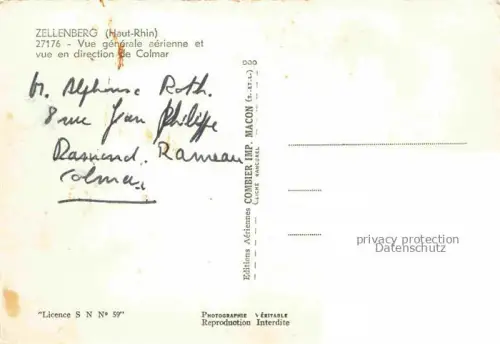 ZELLENBERG (Haut-Rhin)
27176 - Vue générale aérienne et
vue en direction de Colmar
M. Alphonse Roth.
8 rue Jean Philippe
Rameau
Colmar
Editions Aériennes COMBIER IMP. MACON (S.-ET-L.)
CLICHÉ
privacy protection
Datenschutz
"Licence S N N° 59"
PHOTOGRAPHIE VÉRITABLE
Reproduction Interdite